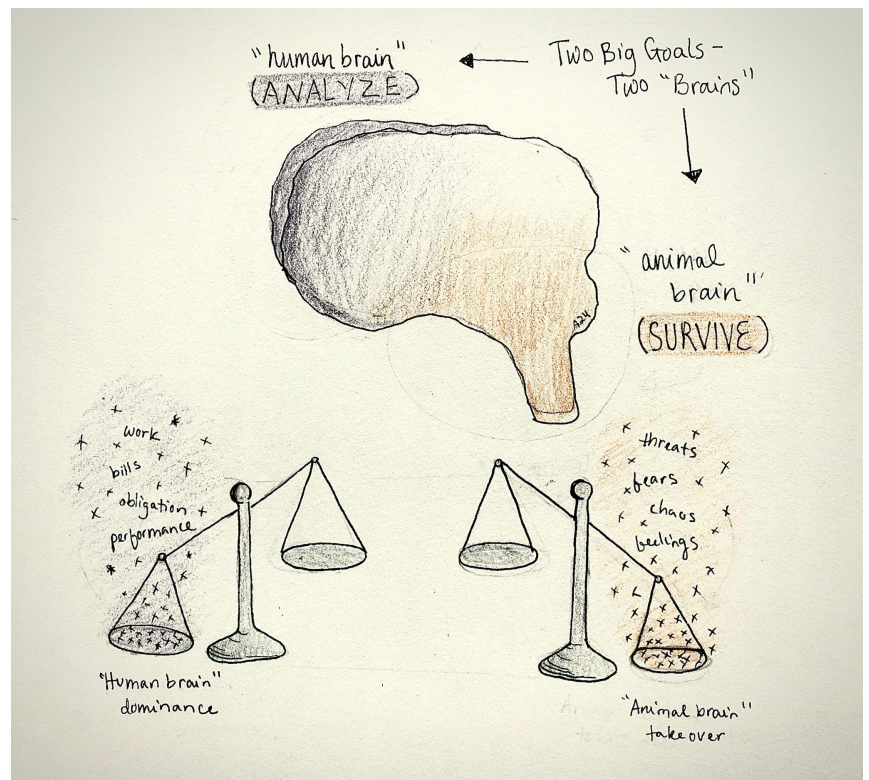 "human brain"
(ANALYZE)
Two Big Goals -
Two "Brains"
"animal
brain"
(SURVIVE)
A24
work
bills
obligation
performance
threats
fears
chaos
feelings
"Human brain"
dominance
"Animal brain"
takeover